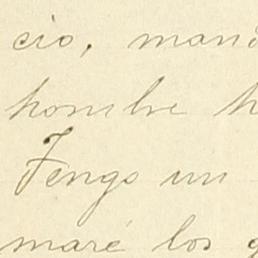 cio, mand
hombre h
Tengo un
maré los g